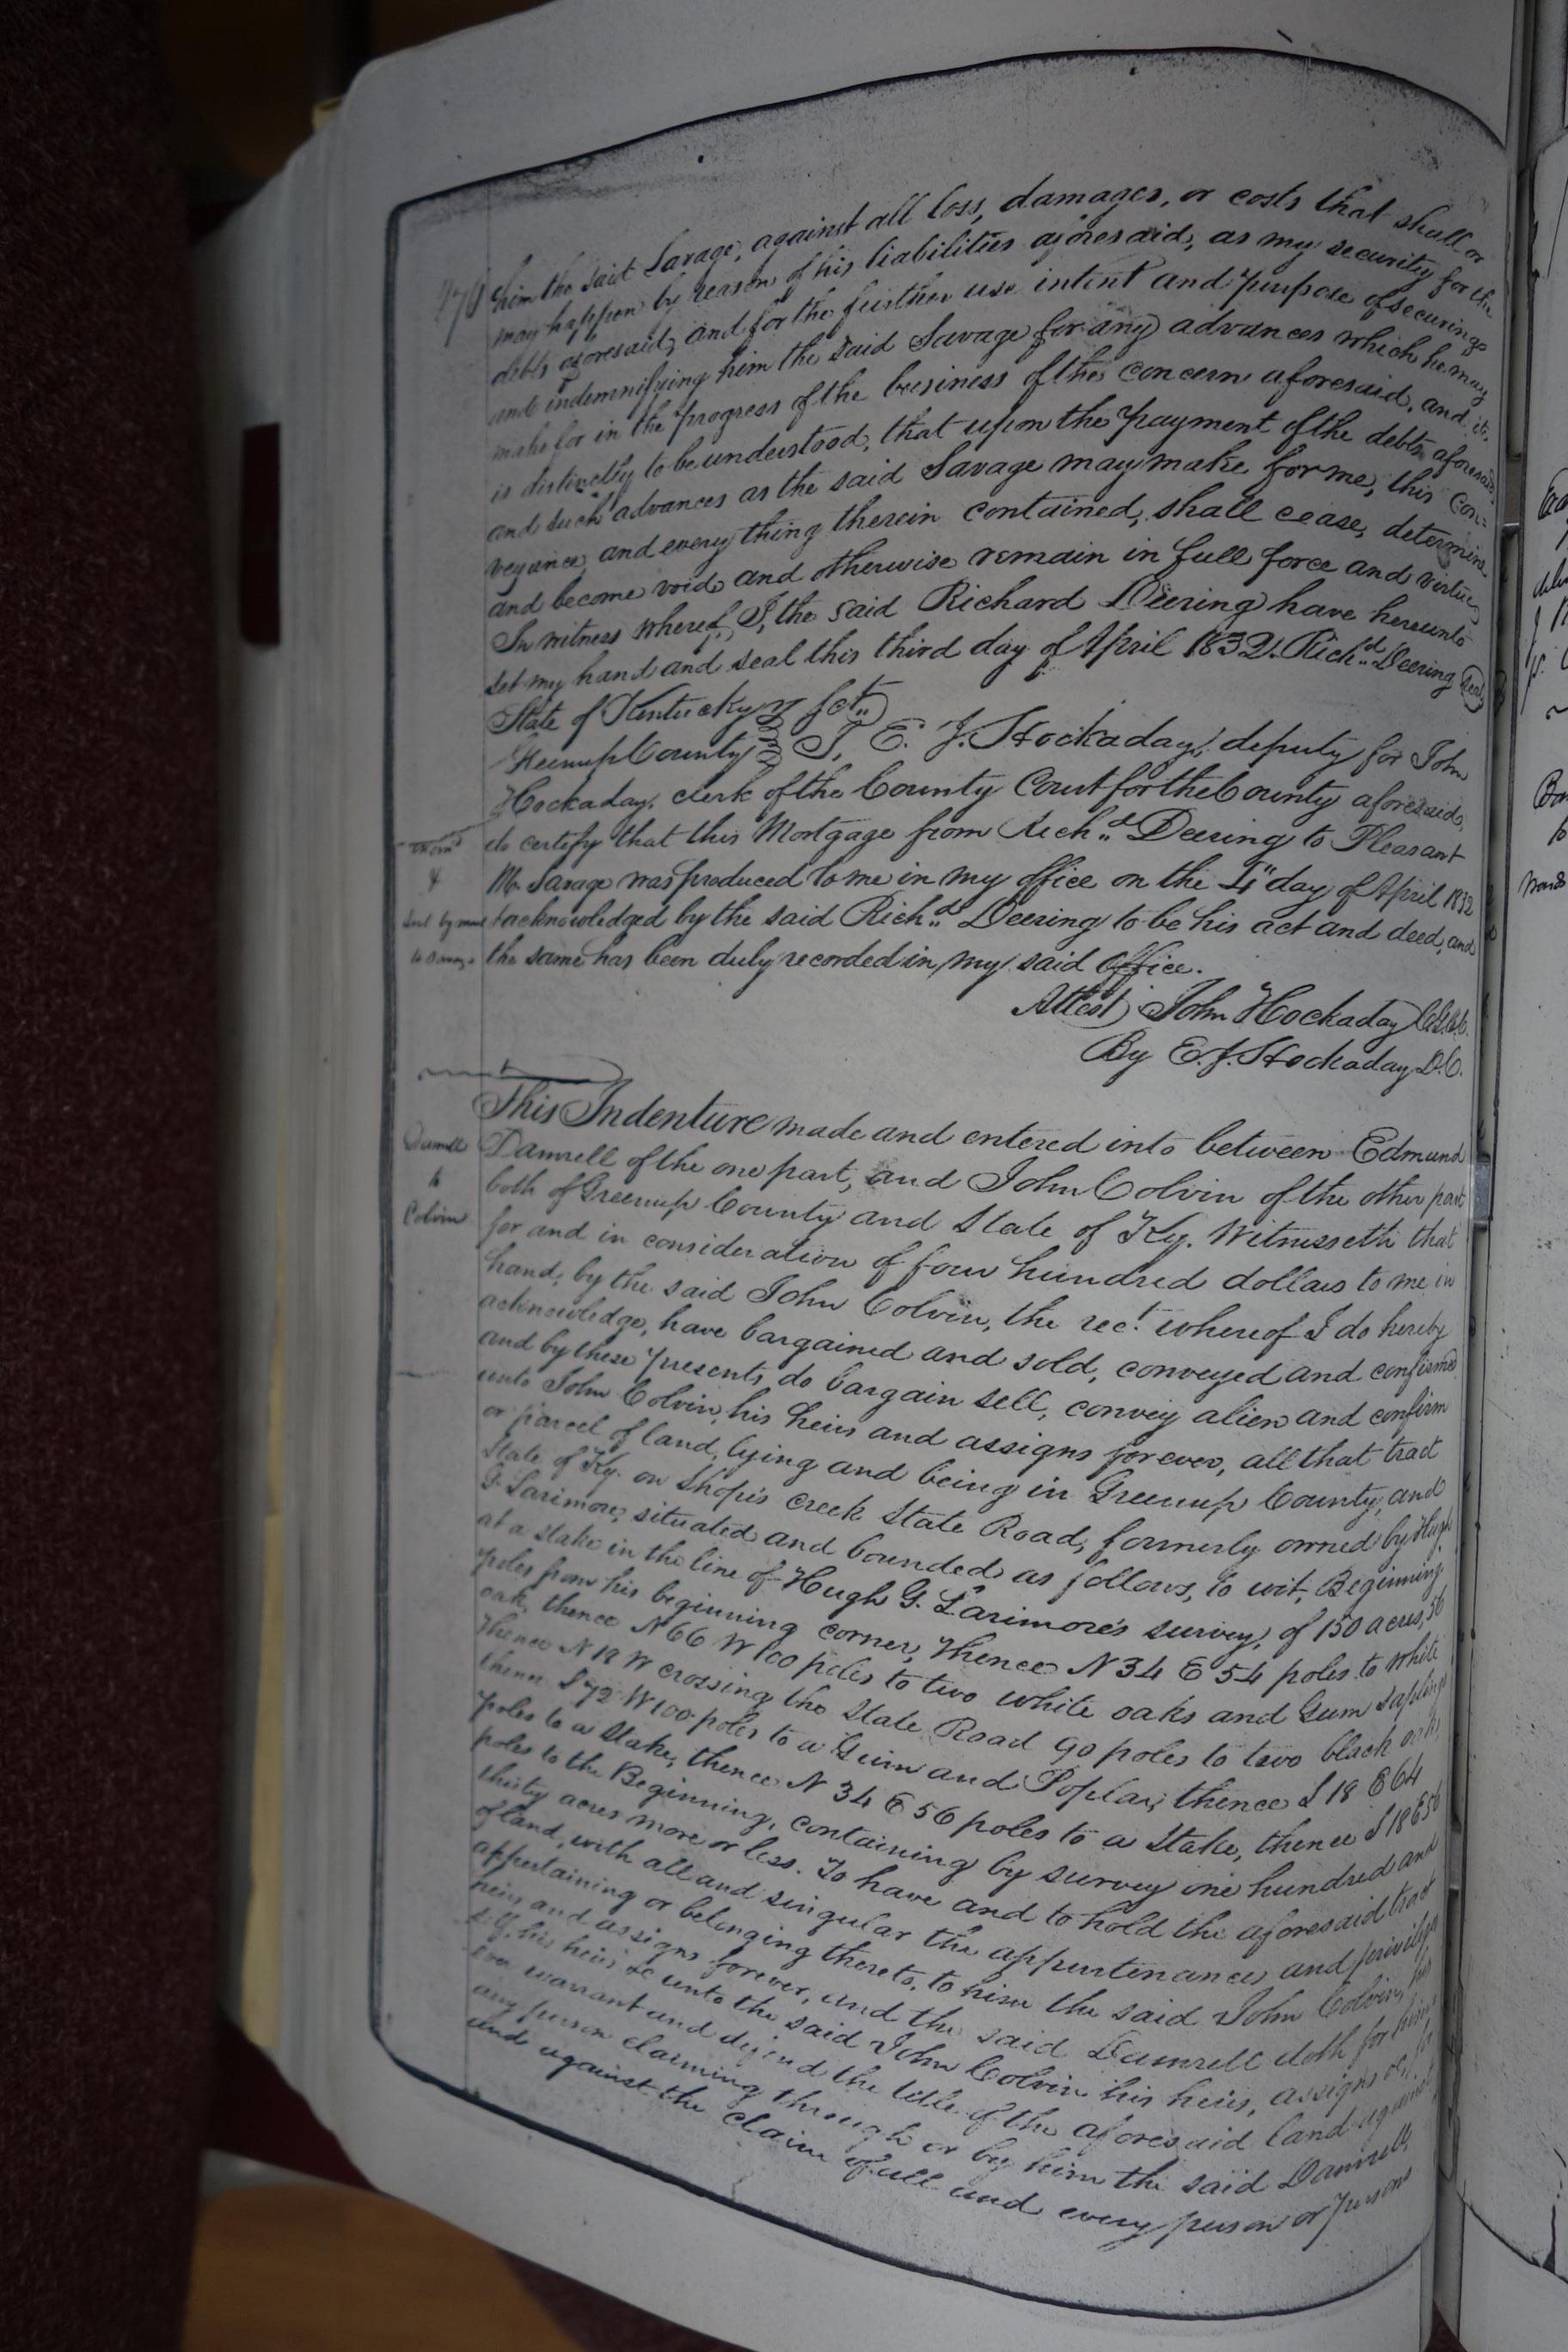 him the said Savage, against all loss, damages, or costs that shall or
may happen by reason of his liabilities aforesaid, as my security for the
debts aforesaid, and for the further use intent and purpose of securing
and indemnifying him the said Savage for any advances which he may
make for in the progress of the business of the concern aforesaid, and it
is distinctly to be understood, that upon the payment of the debts aforesaid,
and such advances as the said Savage may make for me, this con=
veyance, and every thing therein contained, shall cease, determine
and become void and otherwise remain in full force and virtue,
In witness whereof, I, the said Richard Deering have hereunto
set my hand and seal this third day of April 1832. Rich.d Deering Seal
State of Kentucky
Greenup County } sct.
I, E. J. Hockaday, deputy for John
Hockaday, clerk of the County Court for the County aforesaid,
do certify that this Mortgage from Rich.d Deering to Pleasant
M. Savage was produced to me in my office on the 4" day of April 1832
& acknowledged by the said Rich.d Deering to be his act and deed, and
the same has been duly recorded in my said office.
Attest, John Hockaday C.G.C.C.
By E. J. Hockaday D.C.
This Indenture made and entered into between Edmund
Damrell
to
Colvin
Damrell of the one part, and John Colvin of the other part
both of Greenup County and State of Ky. Witnesseth that
for and in consideration of four hundred dollars to me in
hand, by the said John Colvin, the rec.t whereof I do hereby
acknowledge, have bargained and sold, conveyed and confirmed
and by these presents, do bargain sell, convey alien and confirm
unto John Colvin, his heirs and assigns forever, all that tract
or parcel of land, lying and being in Greenup County, and
State of Ky. on Shope's creek State Road, formerly owned by Hugh
G. Larimore, situated and bounded as follows, to wit, Beginning
at a stake in the line of Hugh G. Larimore's survey, of 150 acres, 56
poles from his beginning corner, Thence N 34 E 54 poles to white
oak, thence N 66 W 100 poles to two white oaks and Gum saplings
Thence N 18 W crossing the State Road 90 poles to two black oaks,
thence S 72 W 100 poles to a Gum and Poplar, thence S 18 E 64
poles to a Stake, thence N 34 E 56 poles to a Stake, thence S 18 E 56
poles to the Beginning, containing by survey one hundred and
thirty acres more or less. To have and to hold the aforesaid tract
of land, with all and singular the appurtenances and privileges
appertaining or belonging thereto, to him the said John Colvin, his
heirs and assigns forever, and the said Damrell doth for him
self, his heirs &c unto the said John Colvin his heirs, assigns &c, for
ever warrant and defend the title of the aforesaid land against
any person claiming through or by him the said Damrell,
and against the claim of all and every person or persons